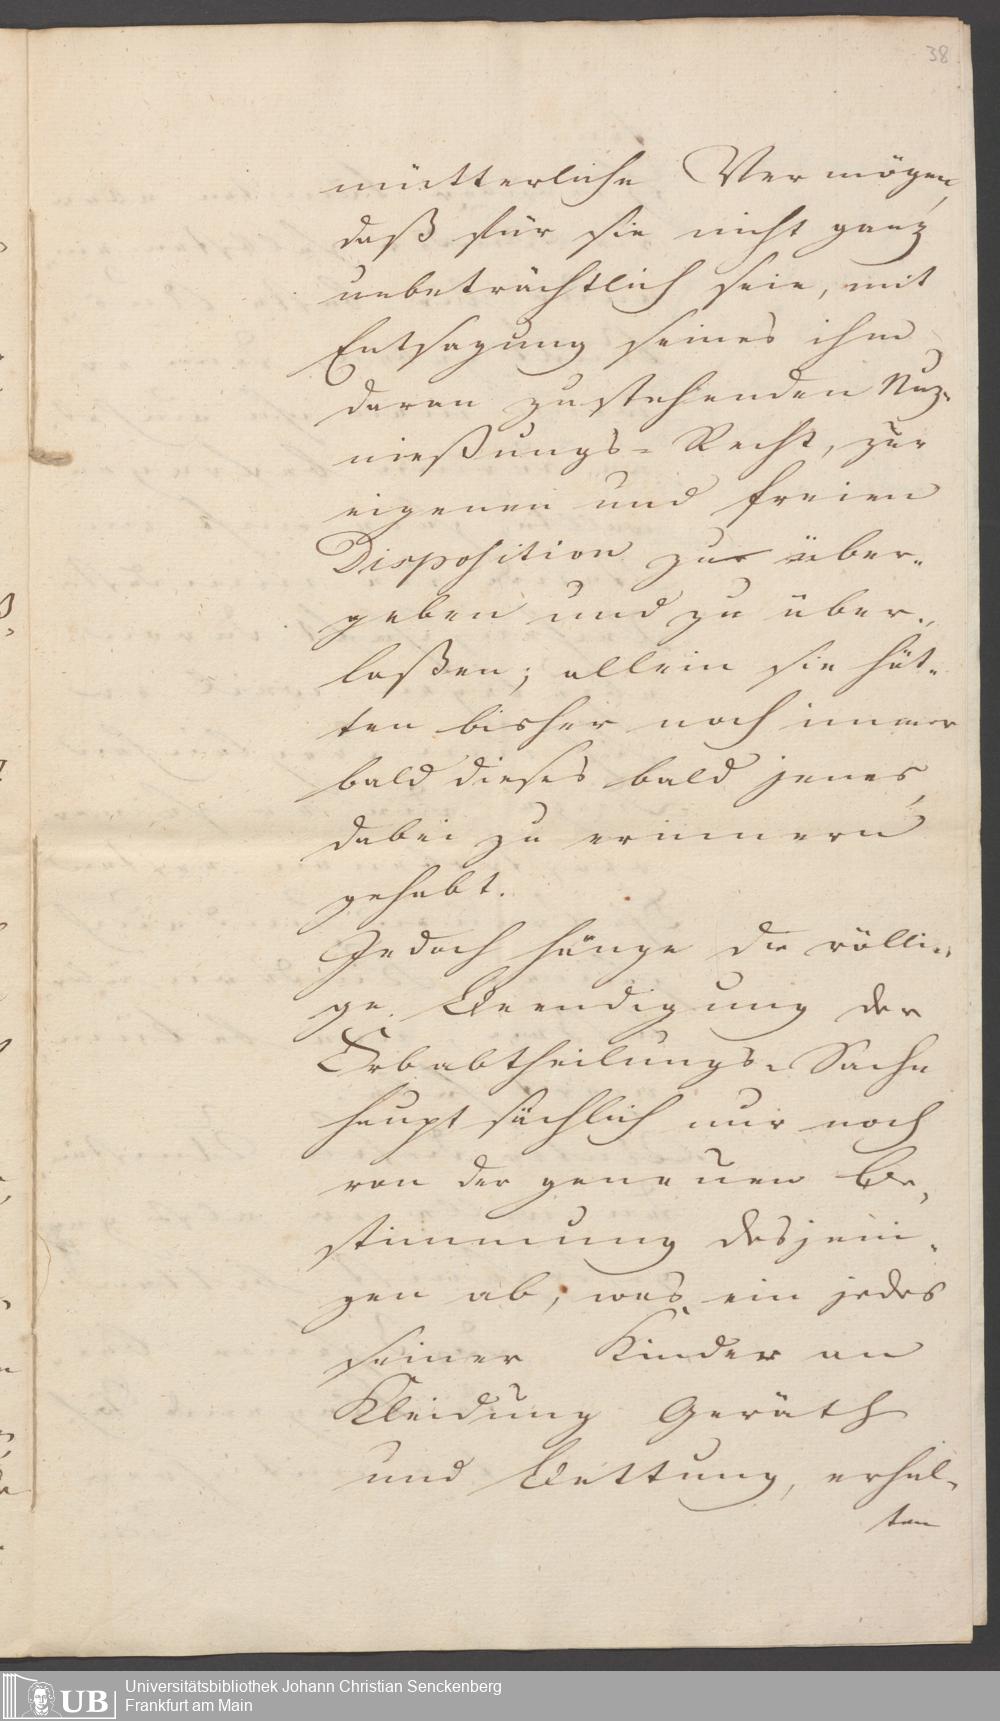 38
mütterliche Vermögen,
daß für sie nicht ganz
unbeträchtlich seie, mit
Entsagung seines ihm
daran zustehenden Nuz-
nießungs-Recht, zur
eigenen und freien
Disposition zur über-
geben und zu über-
laßen; allein sie hät-
ten bisher noch immer
bald dieses bald jenes,
dabei zu erinnern
gehabt.
Jedoch hänge die völli-
ge Beendigung der
Erbabtheilungs-Sache
hauptsächlich nur noch
von der genauen Be-
stimmung desjeni-
gen ab, was ein jedes
seiner Kinder an
Kleidung Geräth
und Bettung, erhal-
ten
UB
Universitätsbibliothek Johann Christian Senckenberg
Frankfurt am Main